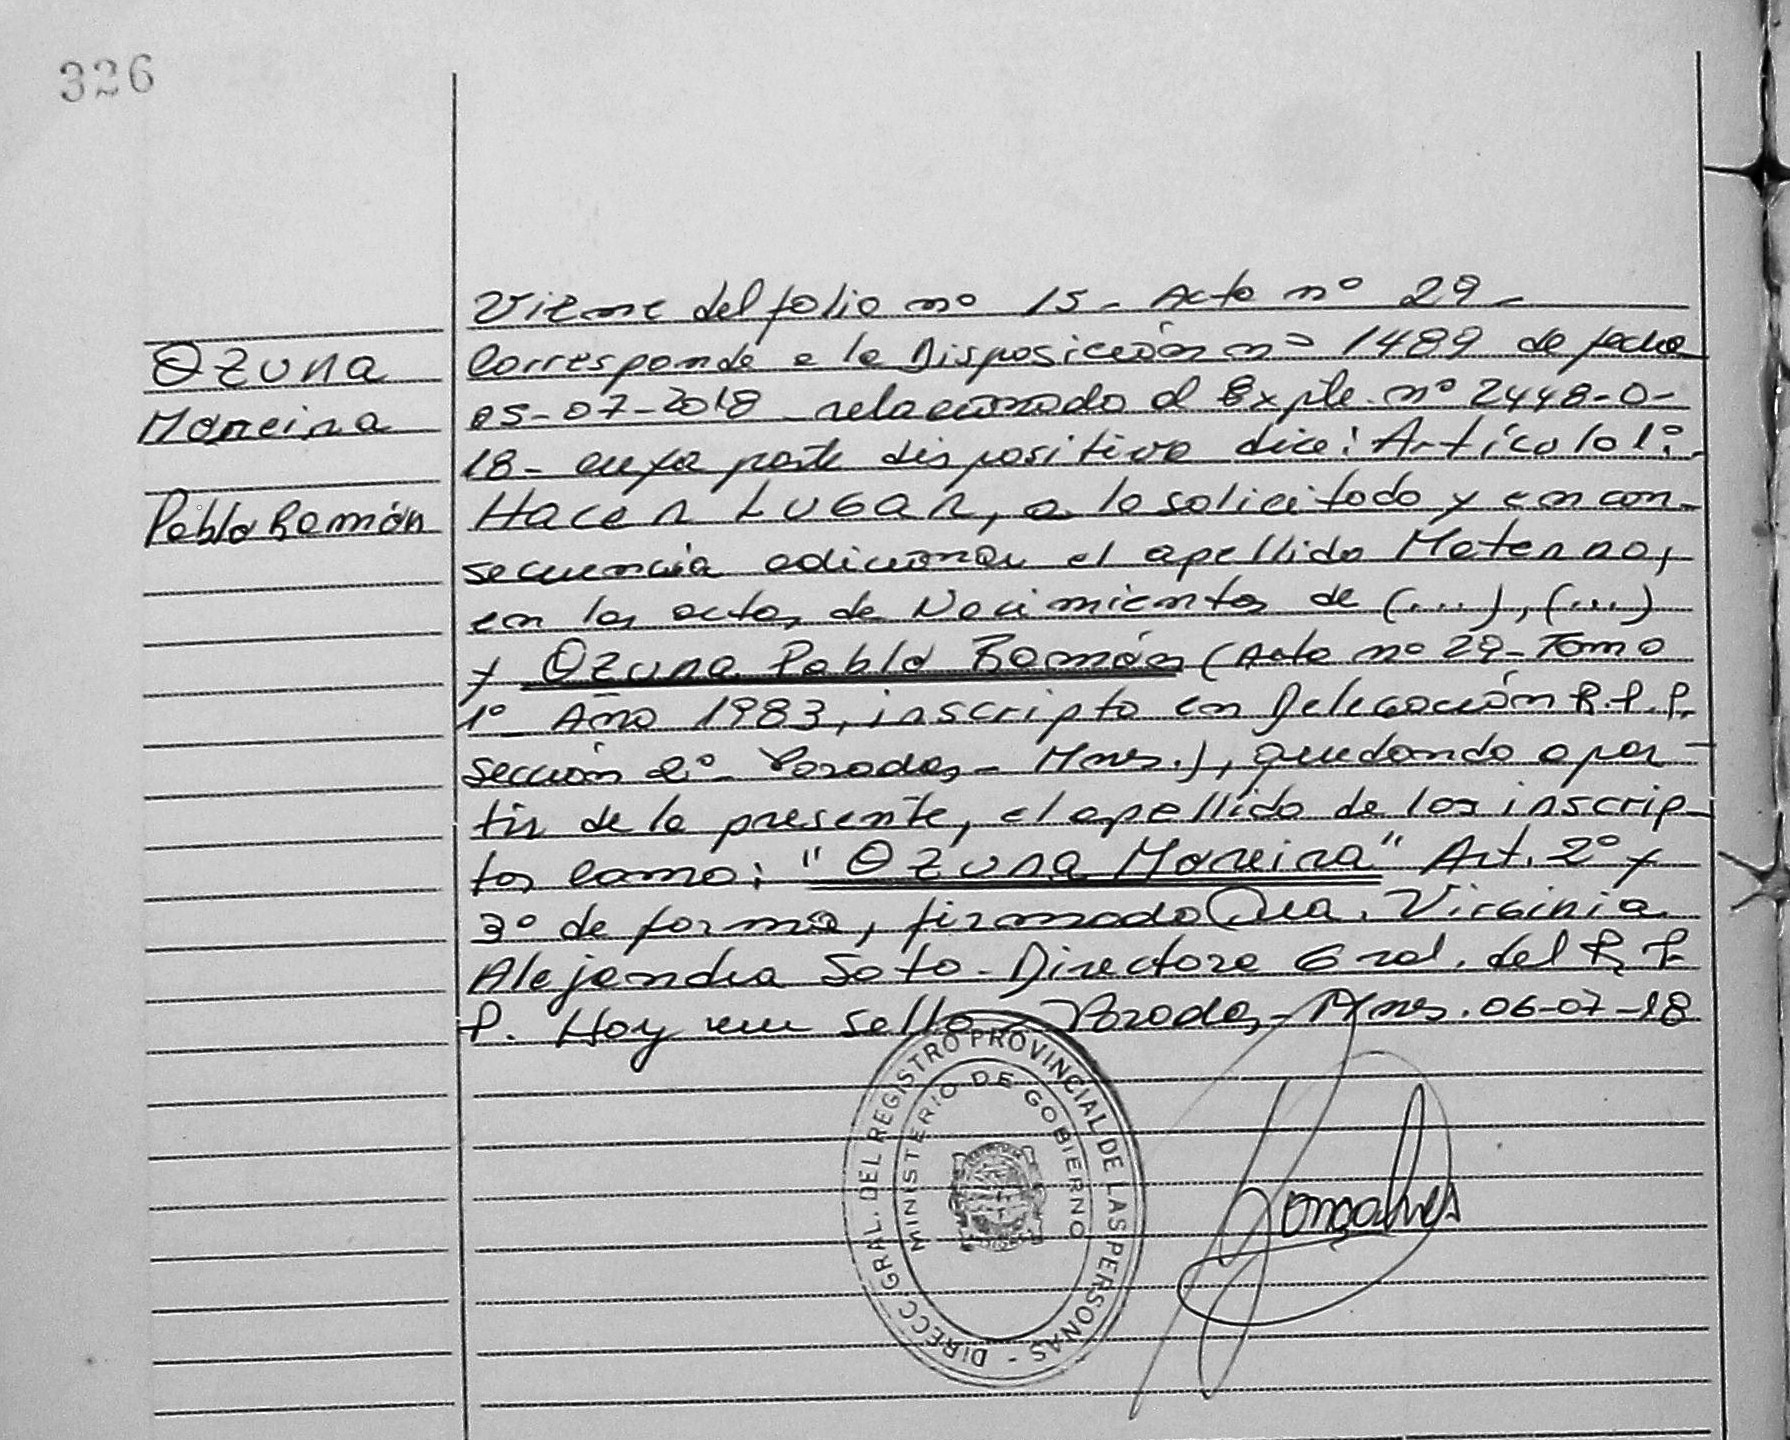 326
Viene del folio nº 15- Acta nº 29-
Ozuna
Moreira
Pablo Ramón
Corresponde a la Disposición nº 1489 de fecha
05-07-2018 relacionado al Expte. nº 2448-O-
18- cuya parte dispositiva dice: Artículo 1º:
HACER LUGAR, a lo solicitado y en con-
secuencia adicionar el apellido Materno,
en las actas de Nacimientos de (...), (...)
y Ozuna Pablo Ramón (Acta nº 29- Tomo
1º Año 1983, inscripto en Delegación R.P.P.
Sección 2º- Posadas- Mnes.), quedando a par-
tir de la presente, el apellido de los inscrip-
tos como: "Ozuna Moreira" Art. 2º y
3º de forma, firmado Dra. Virginia
Alejandra Soto- Directora Gral. del R.P.
P. Hoy un sello- Posadas- Mnes. 06-07-18
DIRECC. GRAL. DEL REGISTRO PROVINCIAL DE LAS PERSONAS -
MINISTERIO DE GOBIERNO